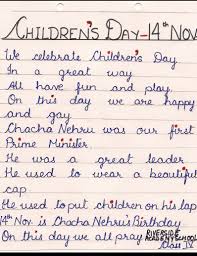 CHILDREN'S DAY-14th NOV
We celebrate Children's Day
In a great way
All have fun and play.
On this day we are happy
and gay.
Chacha Nehru was our first
Prime Minister.
He was a great leader.
He used to wear a beautiful
cap.
He used to put children on his lap
14th Nov. is Chacha Nehru's Birthday
On this day we all pray
RIVERSIDE
ACADEMY SCHOOL
Class IV